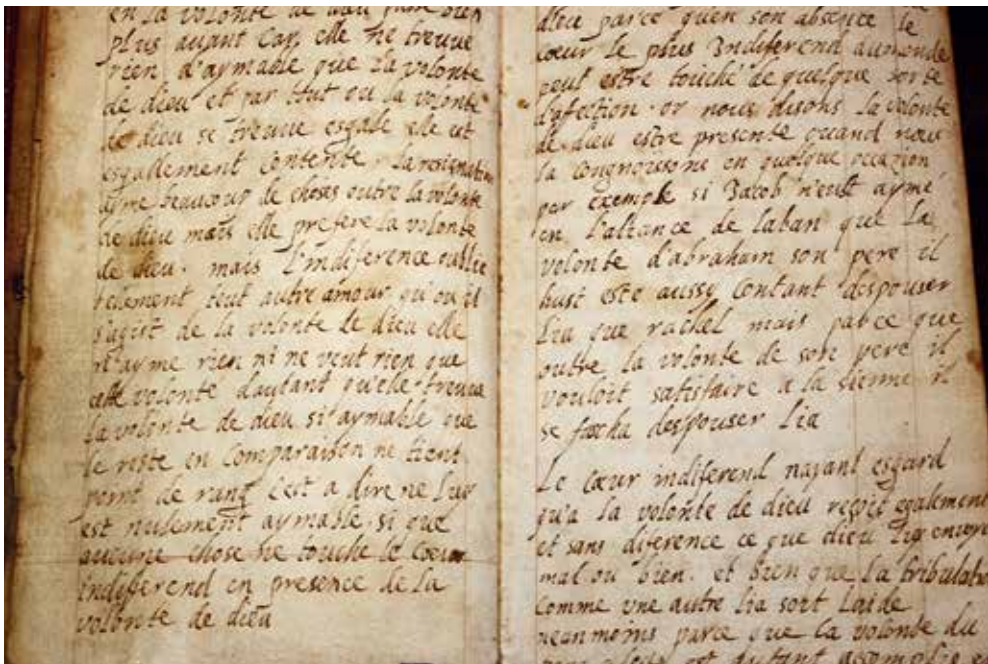 en la volonté de dieu
plus avant Car, elle ne treuve
rien d'aymable que la volonte
de dieu et par tout ou la volonte
de dieu se treuve esgale elle est
esgallement contente. la resignation
ayme beaucoup de choses outre la volonte
de dieu mais elle prefere la volonte
de dieu. mais l'indiference oublie
telement tout autre amour qu'ou il
s'agist de la volonte de dieu elle
n'ayme rien ni ne veut rien que
cette volonte dautant qu'elle treuve
la volonte de dieu si aymable que
le reste en Comparaison ne tient
point de rang c'est a dire ne luy
est nulement aymable. si que
aucune chose ne touche le Coeur
indiferend en presence de la
volonte de dieu
dieu parce quen son absence le
coeur le plus Indiferend au monde
peut estre touché de quelque sorte
dafection. or nous disons la volonte
de dieu estre presente quand nous
la en quelque occazion
par exemple si Jacob n'eust aymé
en l'aliance de laban que la
volonte d'abraham son pere il
hust este aussy Contant despouser
Lia que rachel mais parce que
outre la volonte de son pere il
vouloit satisfaire a la sienne il
se fascha despouser Lia
Le Coeur indiferend nayant esgard
qu'a la volonte de dieu reçoit egalement
et sans diference ce que dieu luy envoye
mal ou bien. et bien que la tribulation
Comme une autre lia soit laide
neanmoins parce que la volonte du
est dautant